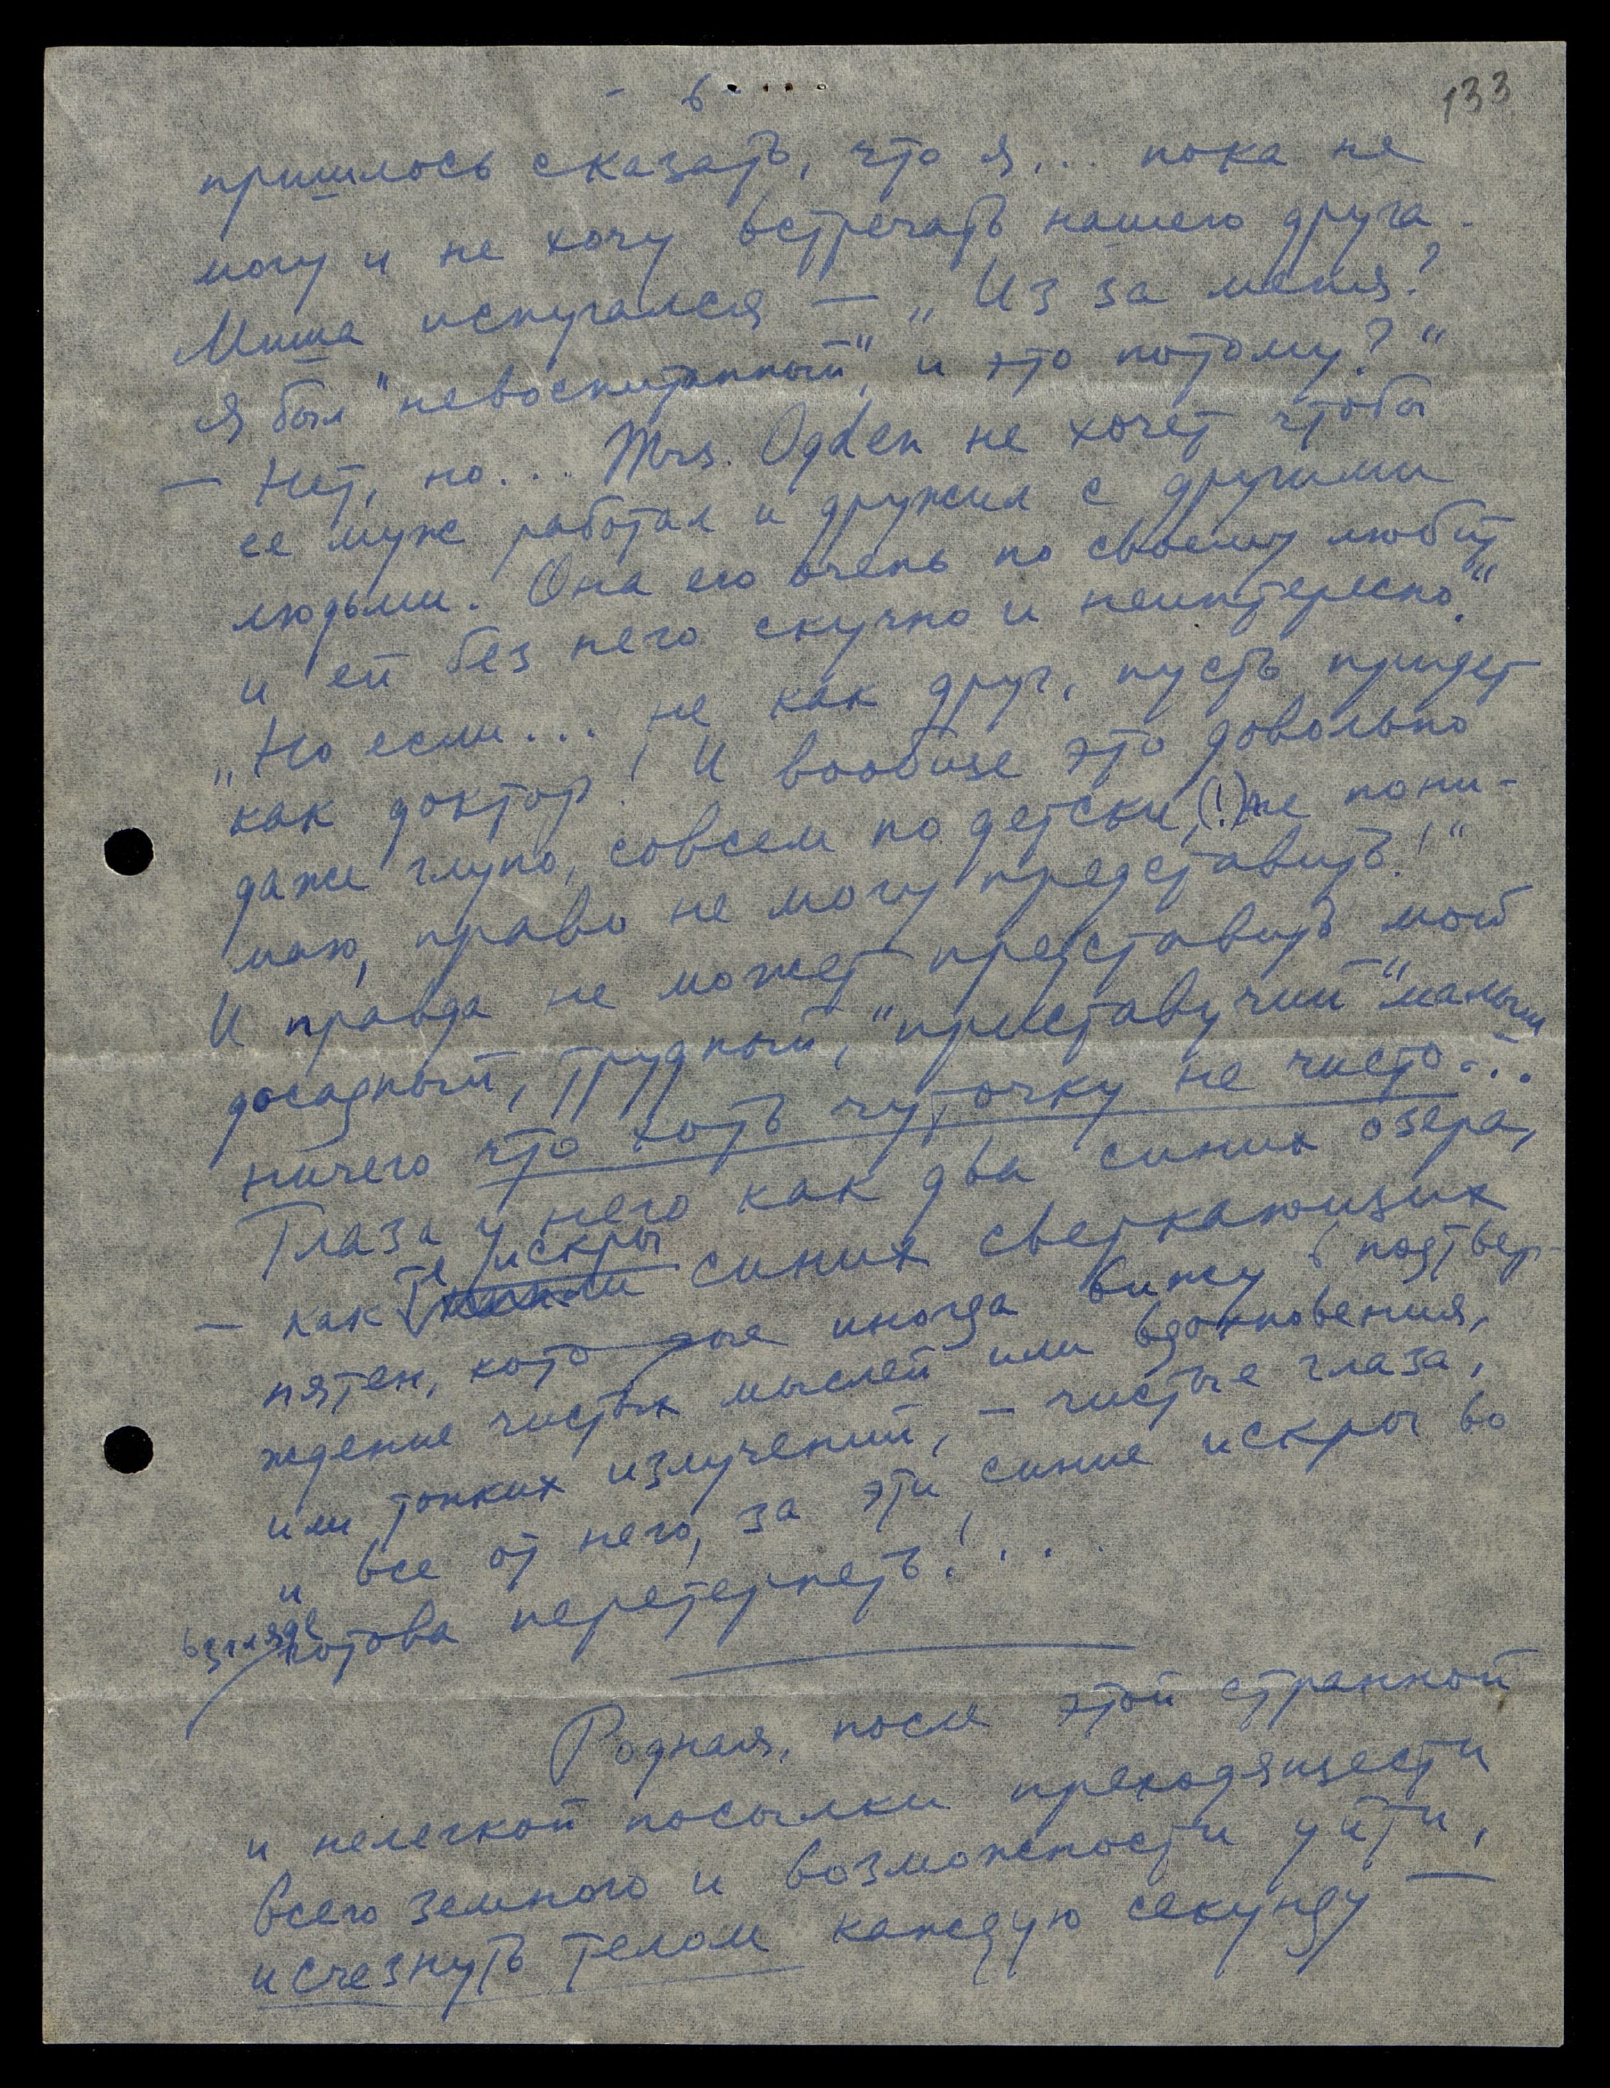 - 6 -
133
пришлось сказать, что я... пока не
могу и не хочу встречать нашего друга.
Миша испугался — „Из за меня?
Я был "невоспитанный", и это потому?“
— Нет, но... Mrs. Ogden не хочет чтобы
ее муж работал и дружил с другими
людьми. Она его очень по своему любит
и ей без него скучно и неинтересно."
„Но если... не как друг, пусть придет
как доктор! И вообще это довольно
даже глупо, совсем по детски, (!) не пони-
маю, право не могу представить!“
И правда не может представить мой
досадный, трудный, "приставучий" малыш
ничего что хоть чуточку не чисто...
Глаза у него как два синих озера,
— как те искры синих сверкающих
пятен, которые иногда вижу в подтвер-
ждение чистых мыслей или вдохновения,
или тонких излучений, — чистые глаза,
и все от него, за эти синие искры во
взгляде готова перетерпеть!....
Родная, после этой странной
и нелегкой посылки преходящести
всего земного и возможности уйти,
исчезнуть телом каждую секунду —